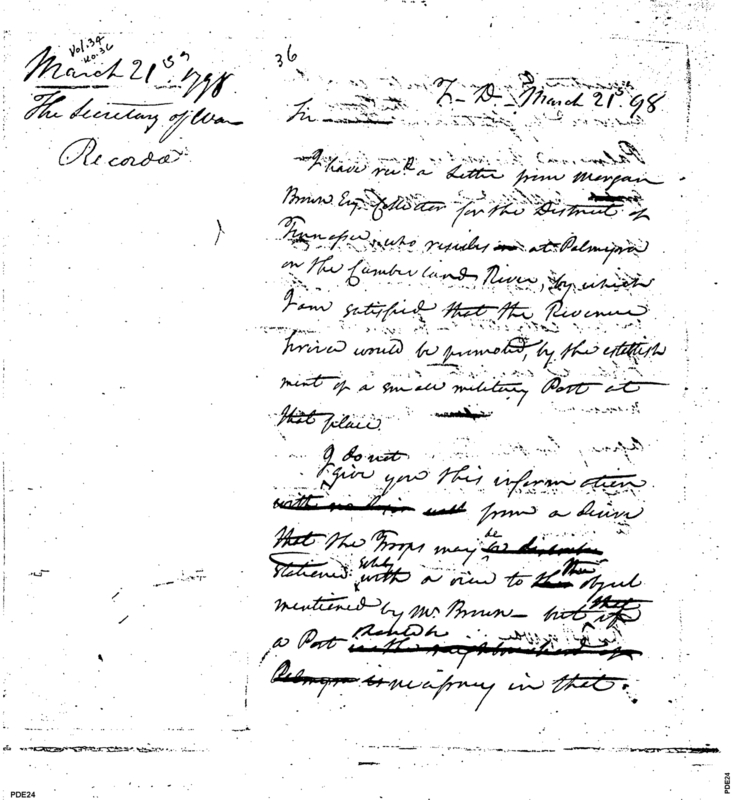 Vol. 34
No. 36
March 21st 1798
The Secretary of War
Recorded
36
T. D. March 21st 98
Sir
I have recd a Letter from Morgan
Brown Esq. Collector for the District of
Tennessee, who resides at Palmyra
on the Cumberland River, by which
I am satisfied that the Revenue
Service would be promoted, by the establish
ment of a small military Post at
that place
I do not
give you this information
from a desire
that the Troops may be
stationed solely with a view to the object
mentioned by Mr Brown - but if
a Post should be in the neighbourhood of
Palmyra is necessary in that
PDE24
PDE24